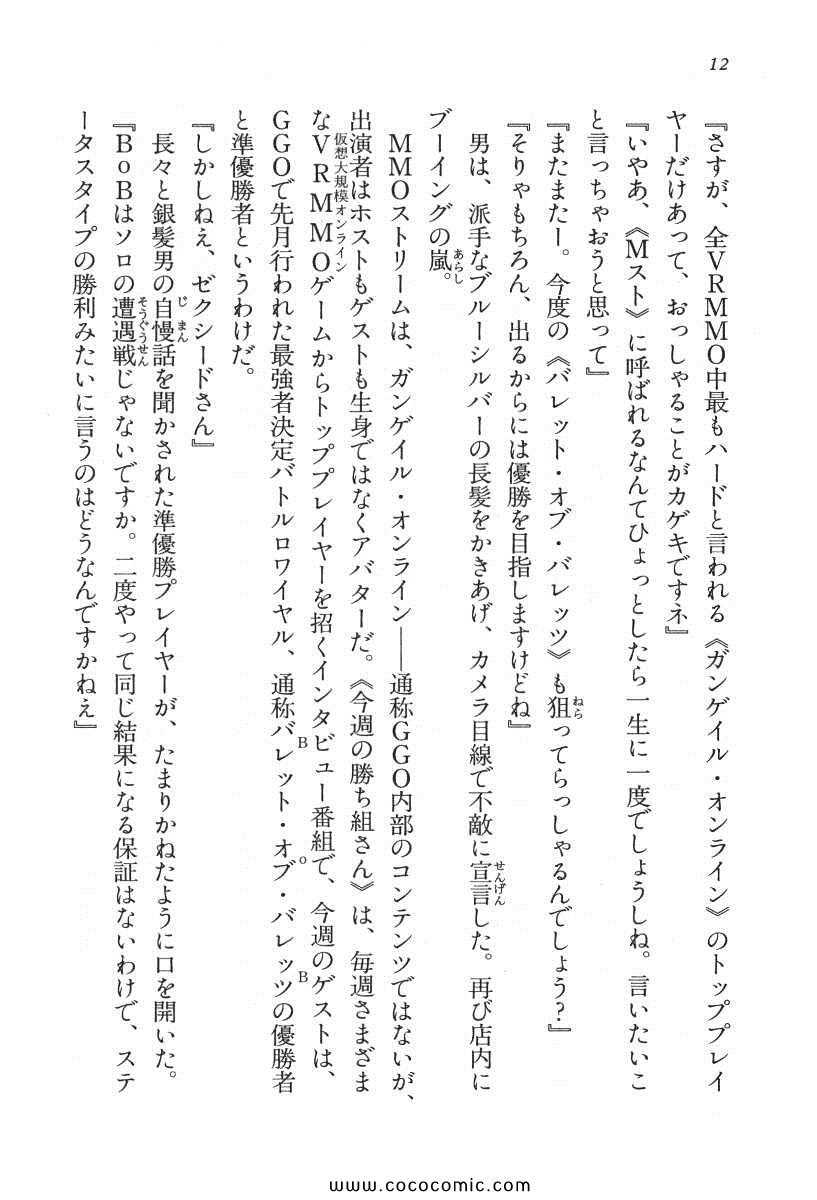 12
『さすが、全VRMMO中最もハードと言われる《ガンゲイル・オンライン》のトッププレイ
ヤーだけあって、おっしゃることがカゲキですネ』
『いやあ、《Mスト》に呼ばれるなんてひょっとしたら一生に一度でしょうしね。言いたいこ
と言っちゃおうと思って』
『またまたー。今度の《バレット・オブ・バレッツ》も狙ってらっしゃるんでしょう?』
『そりゃもちろん、出るからには優勝を目指しますけどね』
男は、派手なブルーシルバーの長髪をかきあげ、カメラ目線で不敵に宣言した。再び店内に
ブーイングの嵐。
MMOストリームは、ガンゲイル・オンライン――通称GGO内部のコンテンツではないが、
出演者はホストもゲストも生身ではなくアバターだ。《今週の勝ち組さん》は、毎週さまざま
なVRMMOゲームからトッププレイヤーを招くインタビュー番組で、今週のゲストは、
GGOで先月行われた最強者決定バトルロワイヤル、通称バレット・オブ・バレッツの優勝者
と準優勝者というわけだ。
『しかしねえ、ゼクシードさん』
長々と銀髪男の自慢話を聞かされた準優勝プレイヤーが、たまりかねたように口を開いた。
『BoBはソロの遭遇戦じゃないですか。二度やって同じ結果になる保証はないわけで、ステ
ータスタイプの勝利みたいに言うのはどうなんですかねえ』
www.cococomic.com